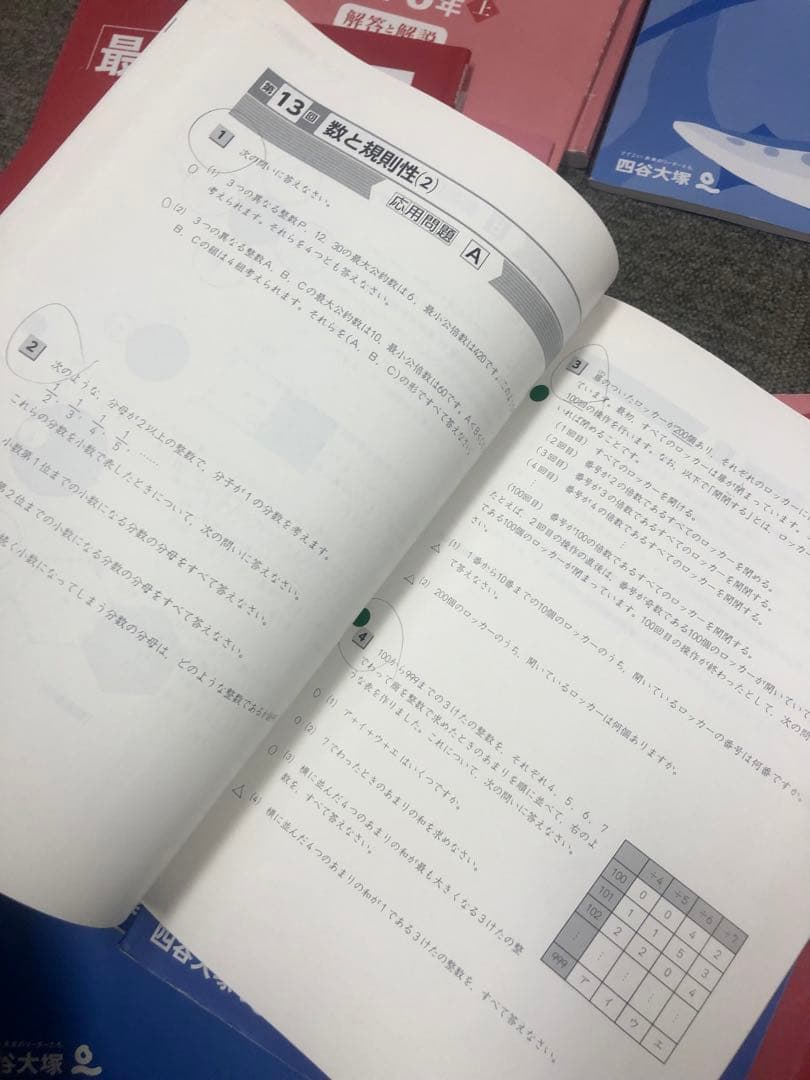 最
6年 上
解答と解説
四谷大塚
第13回 数と規則性(2)
応用問題 A
1 次の問いに答えなさい。
(1) 3つの異なる整数P、12、30の最大公約数は6、最小公倍数は420です。このような
考えられます。それらを4つとも答えなさい。
(2) 3つの異なる整数A、B、Cの最大公約数は10、最小公倍数は60です。A<B<
B、Cの組は4組考えられます。それらを(A、B、C)の形ですべて答えなさい
2 次のような、分母が2以上の整数で、分子が1の分数を考えます。
1/2、1/3、1/4、1/5、……
これらの分数を小数で表したときについて、次の問いに答えなさい。
小数第1位までの小数になる分数の分母をすべて答えなさい。
第2位までの小数になる分数の分母をすべて答えなさい。
続く小数になってしまう分数の分母は、どのような整数である
3 扉のついたロッカーが200個あり、それぞれのロッカーに
ています。最初、すべてのロッカーは扉が閉まっています。
100回の操作を行います。なお、以下で「開閉する」とは、ロッカ
いれば閉めることです。
(1回目) すべてのロッカーを開ける。
(2回目) 番号が2の倍数であるすべてのロッカーを閉める。
(3回目) 番号が3の倍数であるすべてのロッカーを開閉する。
(4回目) 番号が4の倍数であるすべてのロッカーを開閉する。
⋮ ⋮
(100回目) 番号が100の倍数であるすべてのロッカーを開閉する。
たとえば、2回目の操作の直後は、番号が奇数である100個のロッカーが開いていて
である100個のロッカーが閉まっています。100回目の操作が終わったとして、次の問
さい。
△ (1) 1番から10番までの10個のロッカーのうち、開いているロッカーの番号は何番ですか。
て答えなさい。
△ (2) 200個のロッカーのうち、開いているロッカーは何個ありますか。
4 100から999までの3けたの整数を、それぞれ4、5、6、7
でわって商を整数で求めたときのあまりを順に並べて、右のよ
うな表を作りました。これについて、次の問いに答えなさい。
(1) ア+イ+ウ+エ はいくつですか。
(2) 7でわったときのあまりの和を求めなさい。
(3) 横に並んだ4つのあまりの和が最も大きくなる3けたの整
数を、すべて答えなさい。
△ (4) 横に並んだ4つのあまりの和が1である3けたの整数を、すべて答えなさい。
÷4 ÷5 ÷6 ÷7
100 0 0 4 2
101 1 1 5 3
102 2 2 0 4
⋮ ⋮ ⋮ ⋮ ⋮
999 ア イ ウ エ
四谷大塚
谷大塚